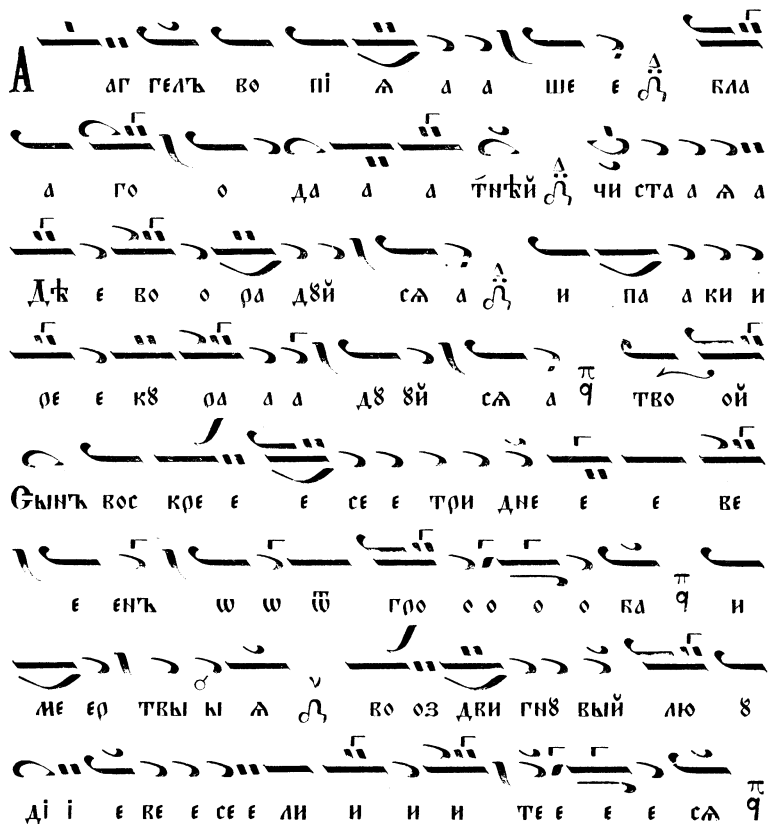 А аг гелъ во пі ѧ а а ше е бла
а го о да а а т́нѣй чи ста а ѧ а
Дѣ е во о ра дꙋй сѧ а и па а ки и
ре е кꙋ ра а а дꙋ ꙋй сѧ а тво ой
Сынъ вос кре е е се е три дне е е ве
е енъ ѡ ѡ ѿ гро о о о о ба и
ме ер твы ы ѧ во оз дви гнꙋ вый лю ꙋ
ді і е ве е се е ли и и и те е е е сѧ